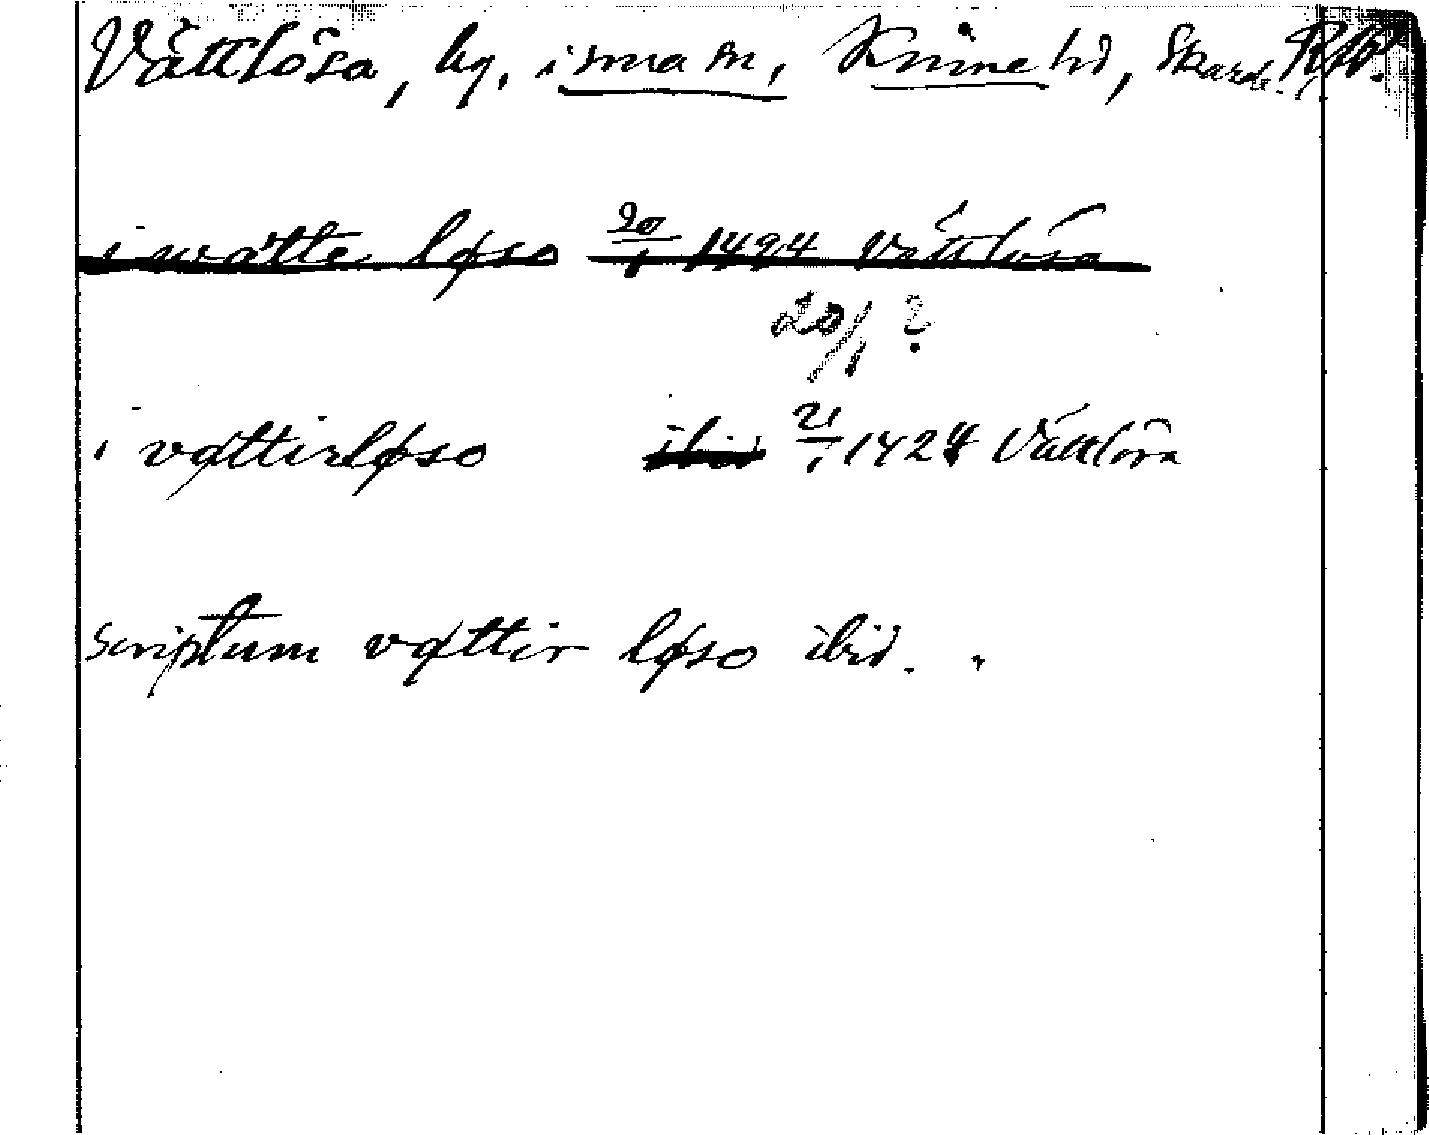 Vättlösa, by, i sma sn, Kinne hd, Skarab. RAP.
i wätte løso 20/1 1424 Vättlösa
20/1 ?
i vøttirløso ibid 21/1 1424 Vättlösa
Scriptum vøttir løso ibid.